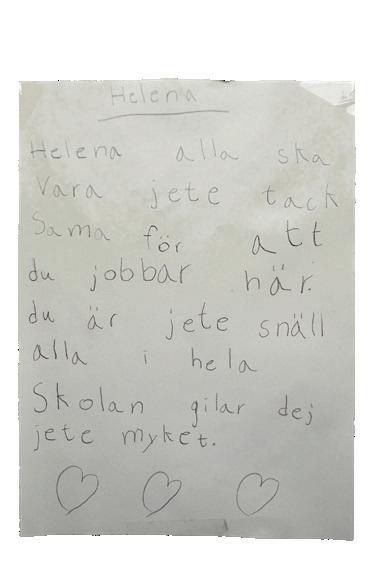 Helena
Helena alla ska
Vara jete tack
Sama för att
du jobbar här.
du är jete snäll
alla i hela
Skolan gilar dej
jete myket.